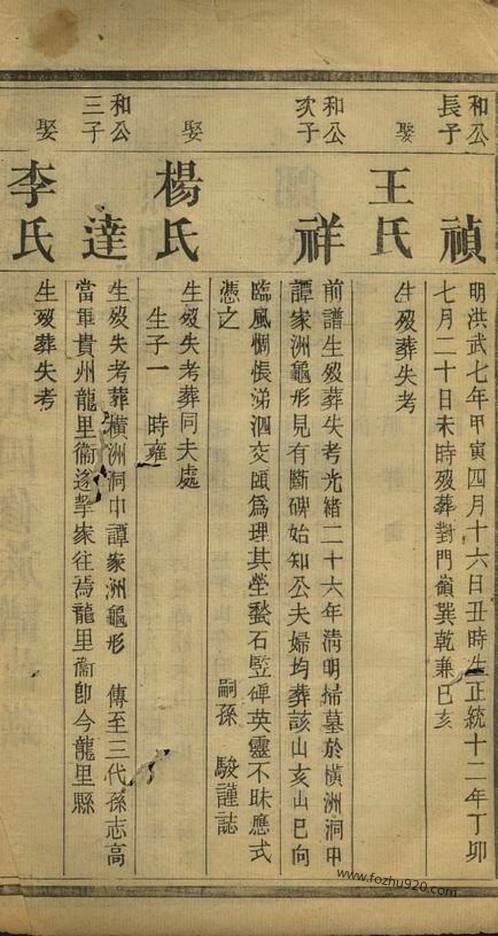 和公長子
禎
明洪武七年甲寅四月十六日丑時生正統十二年丁卯
七月二十日未時歿葬對門嶺巽乾兼巳亥
娶
王氏
生歿葬失考
和公次子
祥
前譜生歿葬失考光緒二十六年清明掃墓於橫洲洞中
譚家洲龜形見有斷碑始知公夫婦均葬該山亥山巳向
臨風惆悵涕泗交頤爲理其塋甃石竪碑英靈不昧應式
憑之
嗣孫 駿謹誌
娶
楊氏
生歿失考葬同夫處
生子一 時雍
和公三子
達
生歿失考葬橫洲洞中譚家洲龜形 傳至三代孫志高
當軍貴州龍里衞遂挈家往焉龍里衞卽今龍里縣
娶
李氏
生歿葬失考
www.fozhu920.com